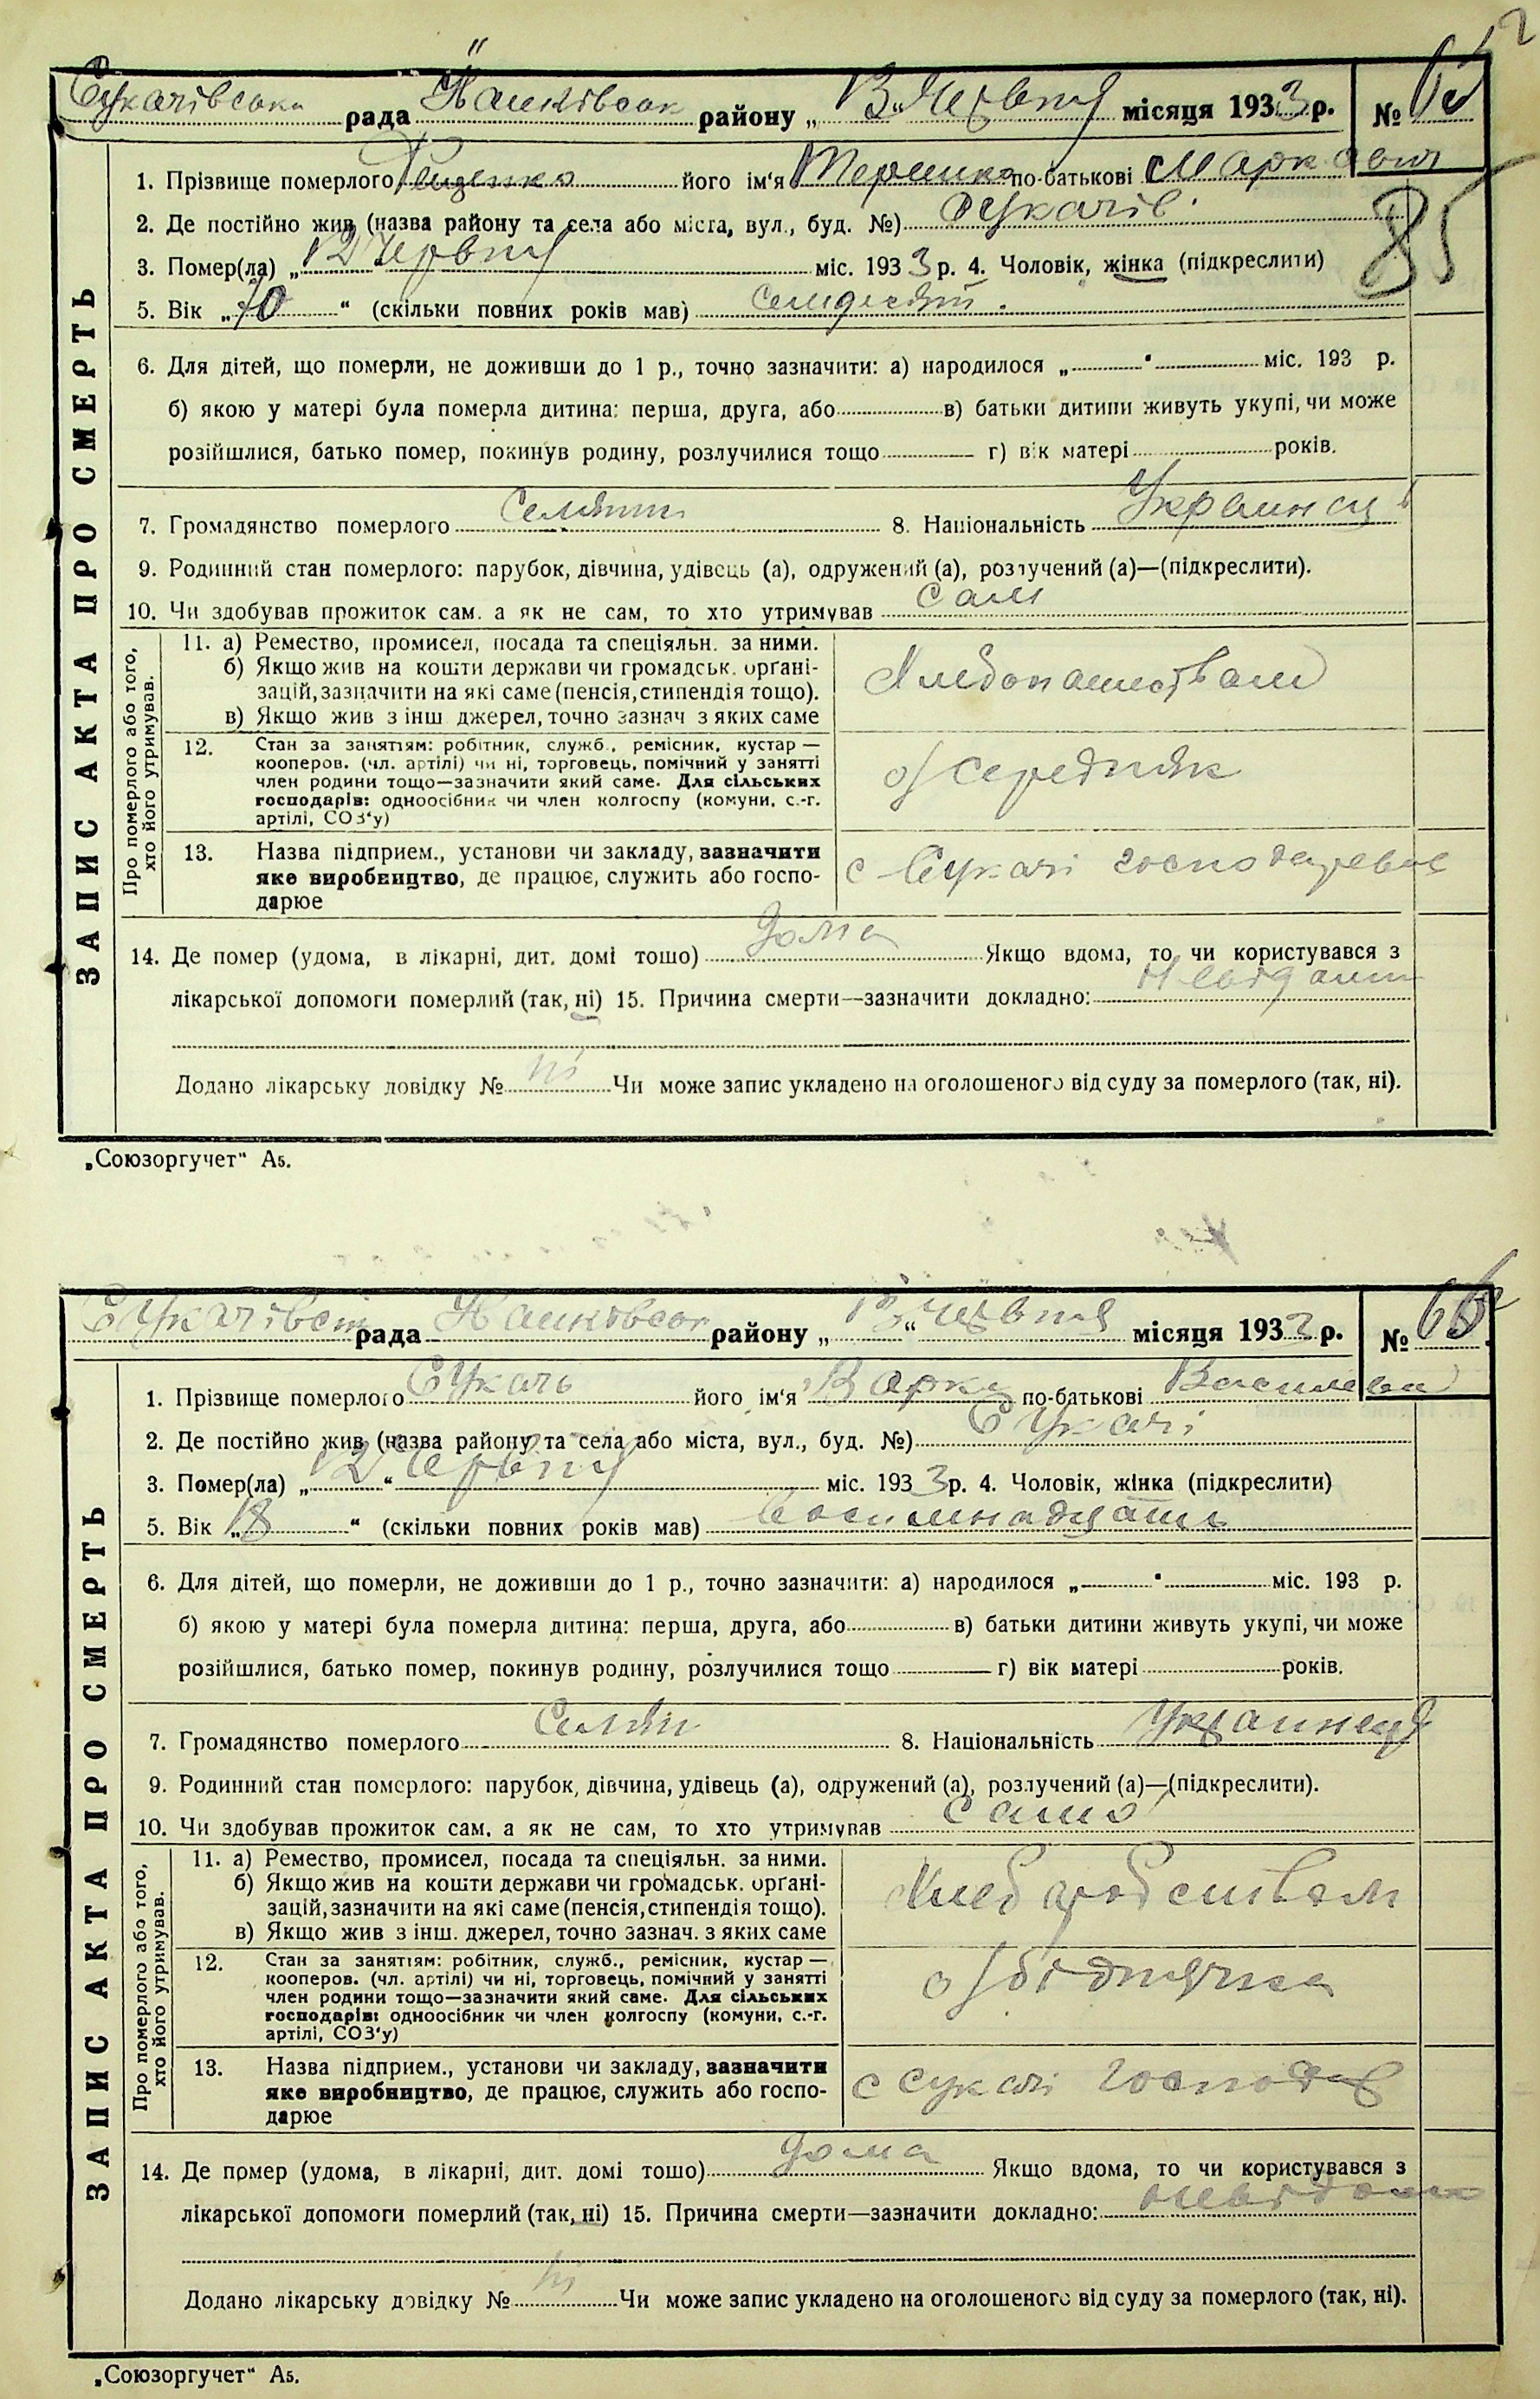 Сукачівська рада района „13 Червня місяця 1933 р. №
1. Прізвище померлого його ім'я по-батькові Маркович
85
2. Де постійно жив (назва району та села або міста, вул., буд. №) Сукачів
3. Помер(ла) „12 Червня міс. 1933 р. 4. Чоловік, жінка (підкреслити)
5. Вік „70“ (скільки повних років мав) семдесят
6. Для дітей, що померли, не доживши до 1 р., точно зазначити: а) народилося „ “ міс. 193 р.
б) якою у матері була померла дитина: перша, друга, або в) батьки дитини живуть укупі, чи може
розійшлися, батько помер, покинув родину, розлучилися тощо г) вік матері років.
7. Громадянство померлого Селянин 8. Національність Украинец
9. Родинний стан померлого: парубок, дівчина, удівець (а), одружений (а), розлучений (а)—(підкреслити).
10. Чи здобував прожиток сам, а як не сам, то хто утримував Сам
11. а) Ремество, промисел, посада та спеціяльн. за ними.
б) Якщо жив на кошти держави чи громадськ. орґані-
зацій, зазначити на які саме (пенсія, стипендія тощо).
в) Якщо жив з інш джерел, точно зазнач з яких саме
Хлебопашеством
12. Стан за заняттям: робітник, служб., ремісник, кустар —
кооперов. (чл. артілі) чи ні, торговець, помічний у занятті
член родини тощо—зазначити який саме. Для сільських
господарів: одноосібник чи член колгоспу (комуни, с.-г.
артілі, СОЗ'у)
о/середняк
13. Назва підприєм., установи чи закладу, зазначити
яке виробництво, де працює, служить або госпо-
дарює
с Сукачі
14. Де помер (удома, в лікарні, дит. домі тощо) дома Якщо вдома, то чи користувався з
лікарської допомоги померлий (так, ні) 15. Причина смерти—зазначити докладно:
Додано лікарську довідку № ні Чи може запис укладено на оголошеного від суду за померлого (так, ні).
ЗАПИС АКТА ПРО СМЕРТЬ
Про померлого або того,
хто його утримував.
„Союзоргучет“ А5.
рада района „13“ Червня місяця 1933 р. №
1. Прізвище померлого Сукач його ім'я Варка по-батькові
2. Де постійно жив (назва району та села або міста, вул., буд. №) Сукачі
3. Помер(ла) „12“ Червня міс. 1933 р. 4. Чоловік, жінка (підкреслити)
5. Вік „18“ (скільки повних років мав)
6. Для дітей, що померли, не доживши до 1 р., точно зазначити: а) народилося „ “ міс. 193 р.
б) якою у матері була померла дитина: перша, друга, або в) батьки дитини живуть укупі, чи може
розійшлися, батько помер, покинув родину, розлучилися тощо г) вік матері років.
7. Громадянство померлого 8. Національність
9. Родинний стан померлого: парубок, дівчина, удівець (а), одружений (а), розлучений (а)—(підкреслити).
10. Чи здобував прожиток сам, а як не сам, то хто утримував Само
11. а) Ремество, промисел, посада та спеціяльн. за ними.
б) Якщо жив на кошти держави чи громадськ. орґані-
зацій, зазначити на які саме (пенсія, стипендія тощо).
в) Якщо жив з інш. джерел, точно зазнач. з яких саме
12. Стан за заняттям: робітник, служб., ремісник, кустар —
кооперов. (чл. артілі) чи ні, торговець, помічний у занятті
член родини тощо—зазначити який саме. Для сільських
господарів: одноосібник чи член колгоспу (комуни, с.-г.
артілі, СОЗ'у)
о/біднячка
13. Назва підприєм., установи чи закладу, зазначити
яке виробництво, де працює, служить або госпо-
дарює
с Сукачі
14. Де помер (удома, в лікарні, дит. домі тощо) дома Якщо вдома, то чи користувався з
лікарської допомоги померлий (так, ні) 15. Причина смерти—зазначити докладно: невідомо
Додано лікарську довідку № ні Чи може запис укладено на оголошеного від суду за померлого (так, ні).
ЗАПИС АКТА ПРО СМЕРТЬ
Про померлого або того,
хто його утримував.
„Союзоргучет“ А5.